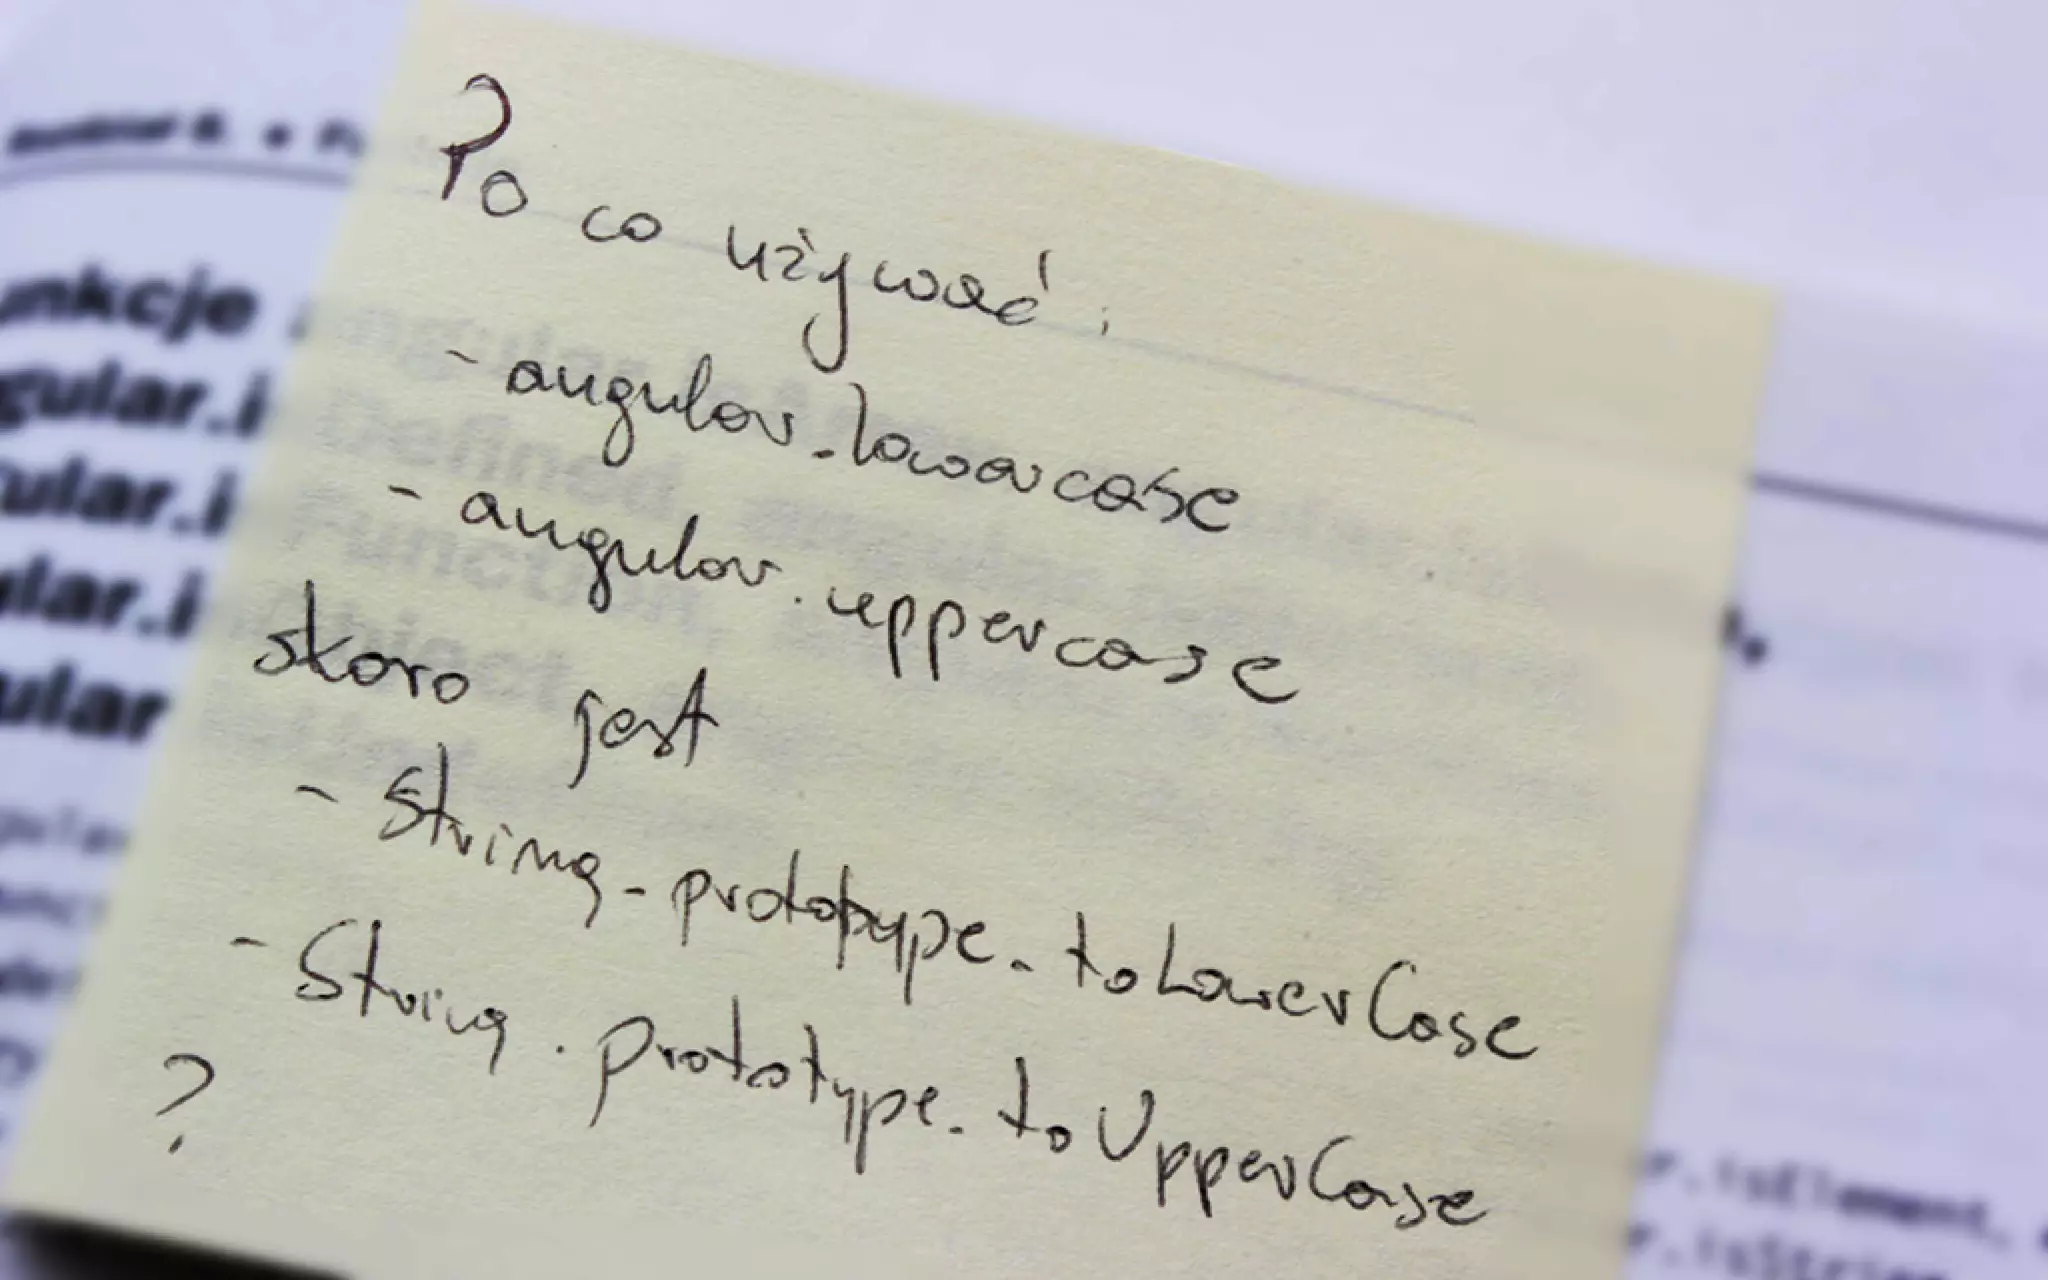 unkcje
gular.i
ular.i
ular.i
ular
Po co używać:
- angular.lowercase
- angular.uppercase
skoro jest
- String.prototype.toLowerCase
- String.prototype.toUpperCase
?
r.isElement,
r.isString